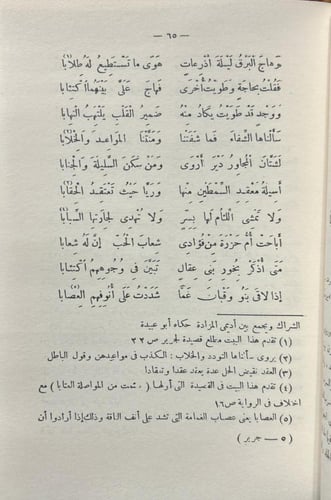 — ٦٥ —
وَهَاجَ الْبَرْقُ لَيْلَةَ أَذْرِعَاتٍ هَوًى مَا تَسْتَطِيعُ لَهُ طِلَابَا
فَقُلْتُ بِحَاجَةٍ وَطَوَيْتُ أُخْرَى فَهَاجَ عَلَىَّ بَيْنَهُمَا اكْتِئَابَا
وَوَجْدٍ قَدْ طَوَيْتُ يَكَادُ مِنْهُ ضَمِيرُ الْقَلْبِ يَلْتَهِبُ الْتِهَابَا
سَأَلْنَاهَا الشِّفَاءَ فَمَا شَفَتْنَا وَمَنَّتْنَا الْمَوَاعِدَ وَالْخِلَابَا
لَشَتَّانَ الْمُجَاوِرُ دَيْرَ أَرْوَى وَمَنْ سَكَنَ السَّلِيلَةَ وَالْجِنَابَا
أَسِيلَةُ مَعْقِدِ السِّمْطَيْنِ مِنْهَا وَرَيَّا حَيْثُ تَعْتَقِدُ الْحِقَابَا
وَلَا تَمْشِى اللِّئَامُ لَهَا بِسِرٍّ وَلَا تُهْدِى لِجَارَتِهَا السِّبَابَا
أَبَاحَتْ أُمُّ حَزْرَةَ مِنْ فُؤَادِى شِعَابَ الْحُبِّ إِنَّ لَهُ شِعَابَا
مَتَى أُذْكَرْ بِخُورِ بَنِى عِقَالٍ تَبَيَّنَ فِى وُجُوهِهِمُ اكْتِئَابَا
إِذَا لَاقَى بَنُو وَقْبَانَ غَمًّا شَدَدْتُ عَلَى أُنُوفِهِمُ الْعِصَابَا
الشراك ويجمع بين أديمى المزادة حكاه أبو عبيدة
(١) تقدم هذا البيت مطلع قصيدة لجرير ص ٢٣
(٢) يروى سألناها التودد والخلاب: الكذب فى مواعدهن وقول الباطل
(٣) العقد نقيض الحل عدة يعقد عقدا وتعقادا
(٤) تقدم هذا البيت فى القصيدة التى أولها ( سئمت من المواصلة العتابا ) مع
اختلاف فى الرواية ص ١٦
(٥) العصابا يعنى عصاب الغمامة التى تشد على أنف الناقة وذلك إذا أرادوا أن
( ٥ — جرير )